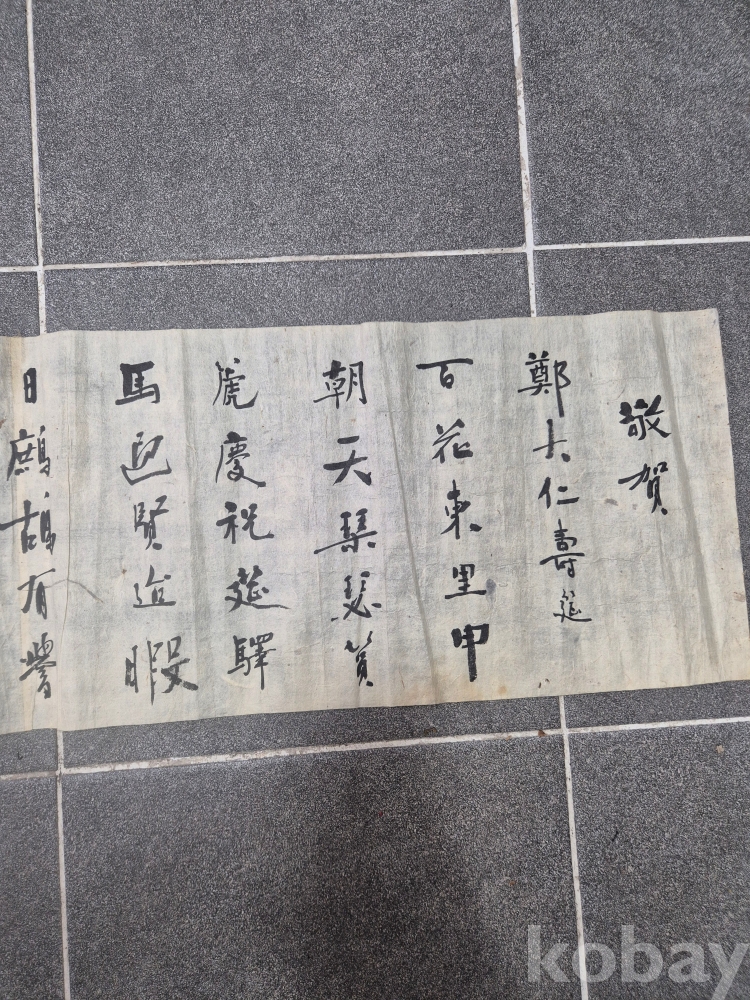 敬賀
鄭大仁壽筵
百花東里甲
朝天琴瑟賀
虎慶祝筵驛
馬迎賢迨暇
日鷓鴣有譽
kobay